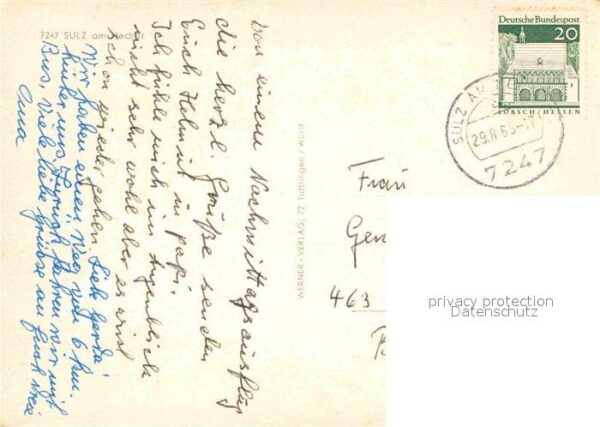 7247 SULZ am Neckar
Von einem Nachmittagsausflug
die herzl. Grüße senden
Euch Helmut u. Papi.
Ich fühle mich im Augenblick
nicht sehr wohl aber es wird
schon wieder gehen
Liebe Gerda!
Wir haben einen Weg von 6 km.
hinter uns. Zurück fahren wir mit
Bus. Viele liebe Grüsse an Euch
Oma
WERNER-VERLAG, 72 Tuttlingen/Württ
Deutsche Bundespost
20
LORSCH/HESSEN
SULZ AM
29.8.6
7247
Frau
463
privacy protection
Datenschutz